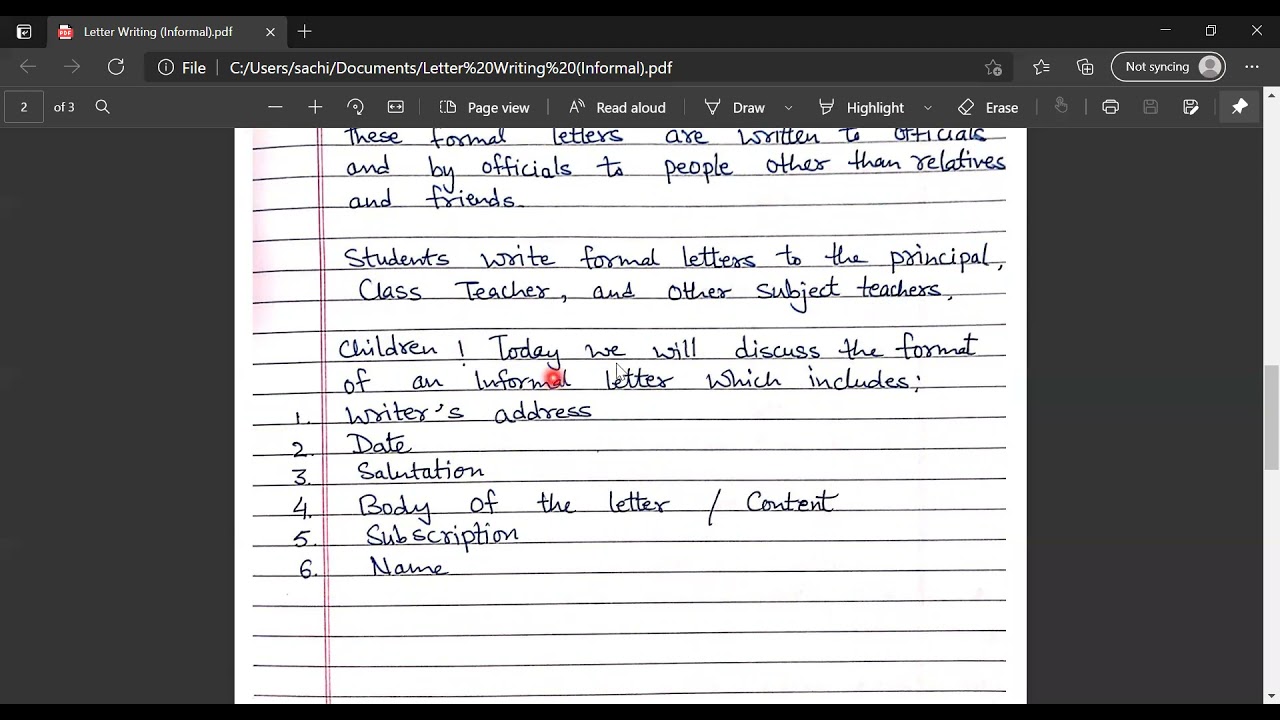 Letter Writing (Informal).pdf
File C:/Users/sachi/Documents/Letter%20Writing%20(Informal).pdf Not syncing
2 of 3 Page view Read aloud Draw Highlight Erase
These formal letters are written to officials
and by officials to people other than relatives
and friends.
Students write formal letters to the principal,
Class Teacher, and other subject teachers.
Children ! Today we will discuss the format
of an Informal letter which includes;
1. Writer's address
2. Date
3. Salutation
4. Body of the letter / Content
5. Subscription
6. Name